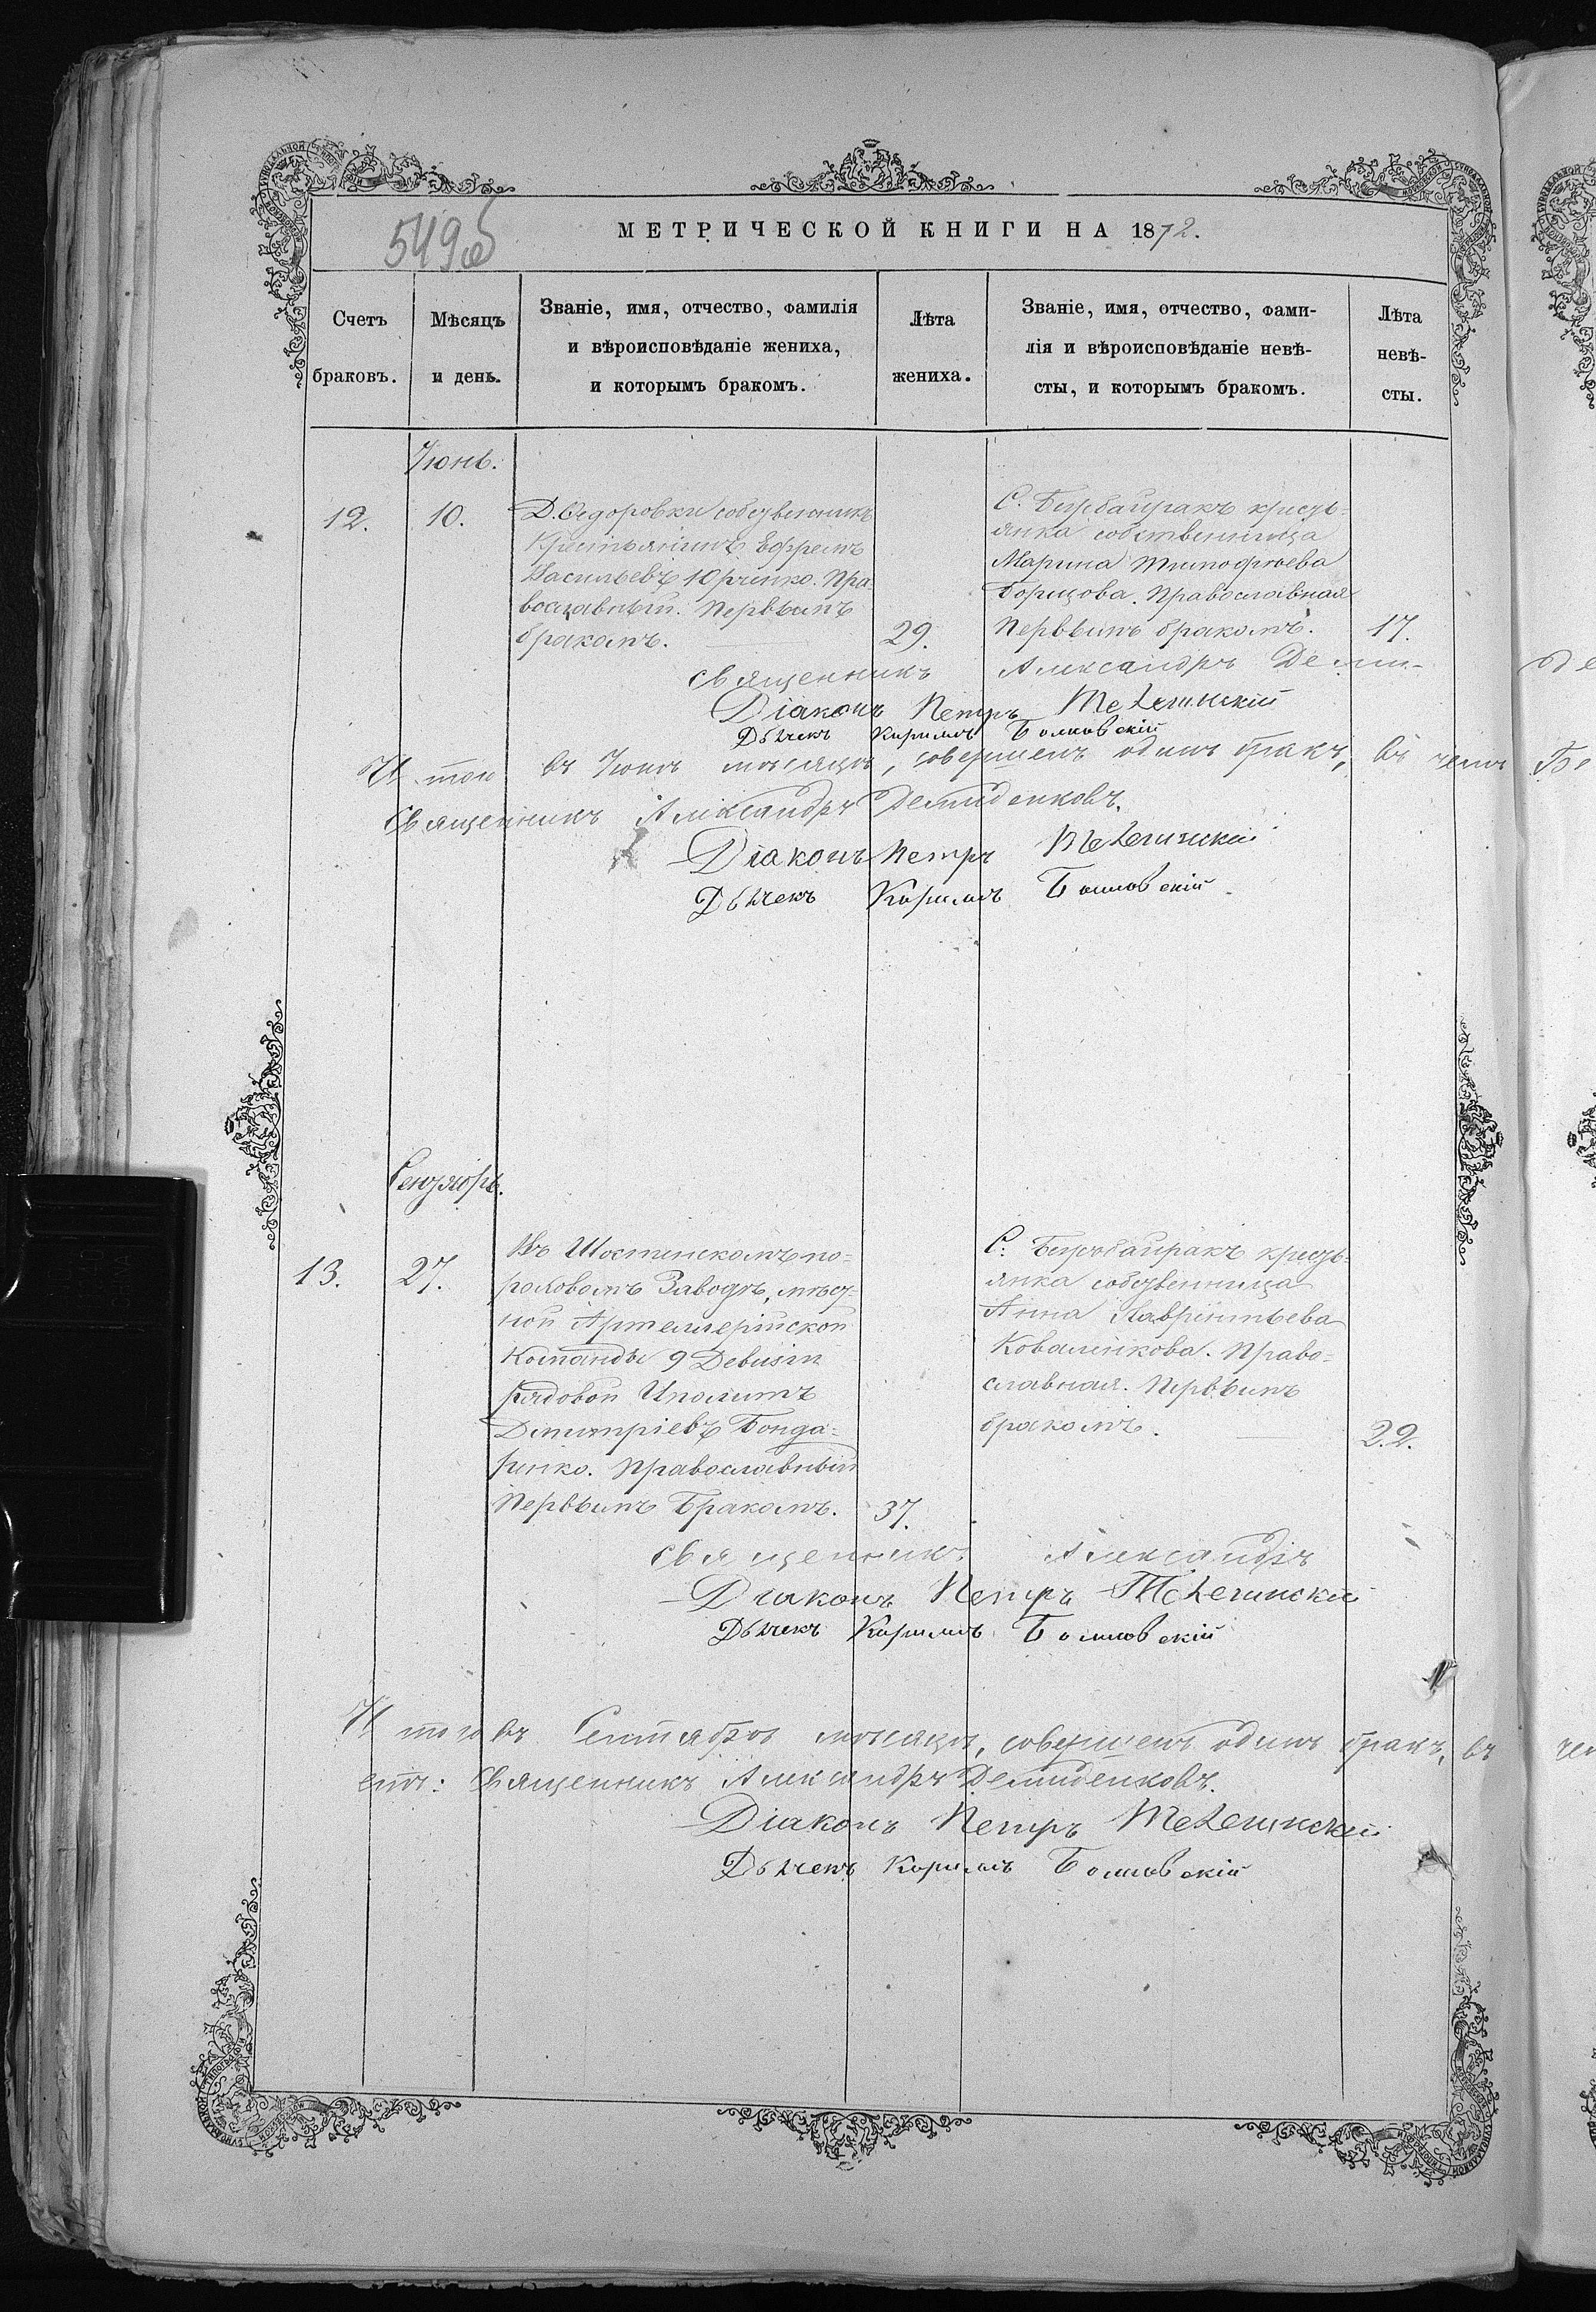 549об
МЕТРИЧЕСКОЙ КНИГИ НА 1872.
Счетъ браковъ.
Мѣсяцъ и день.
Званіе, имя, отчество, фамилія
и вѣроисповѣданіе жениха,
и которымъ бракомъ.
Лѣта жениха.
Званіе, имя, отчество, фами-
лія и вѣроисповѣданіе невѣ-
сты, и которымъ бракомъ.
Лѣта невѣ-
сты.
Іюнь.
12.
10.
Д. Ѳедоровки собственникъ
Крестьянинъ Ефремъ
Васильевъ Юрченко. Пра-
вославный. Первымъ
бракомъ.
29.
С. Бирбайракъ кресть-
янка собственница
Марина Тимофѣева
Борцова. Православная
Первымъ бракомъ.
17.
священникъ Александръ Деми-
Діаконъ Петръ
Дьячекъ Кирилъ
Итого въ Іюнѣ мѣсяцѣ, совершенъ одинъ бракъ, въ чемъ
Священникъ Александръ Демиденковъ.
Діаконъ Петръ
Дьячекъ Кирилъ
Сентябрь.
13.
27.
Въ Шостенскомъ по-
роховомъ Заводѣ, мѣст-
ной Артеллерійской
Команды 9
рядовой Иполитъ
Димитріевъ Бонда-
ренко. Православный
Первымъ Бракомъ.
37.
С. Бирбайракъ кресть-
янка собственница
Анна Лаврентьева
Коваленкова. Право-
славная. Первымъ
бракомъ.
22.
священникъ Александръ
Діаконъ Петръ
Дьячекъ Кирилъ
Итого въ Сентябрѣ мѣсяцѣ, совершенъ одинъ бракъ, въ
Священникъ Александръ Демиденковъ.
Діаконъ Петръ
Дьячекъ Кирилъ